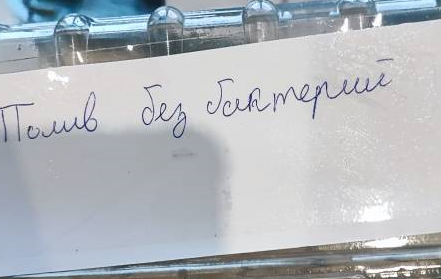 Полив без бактерий